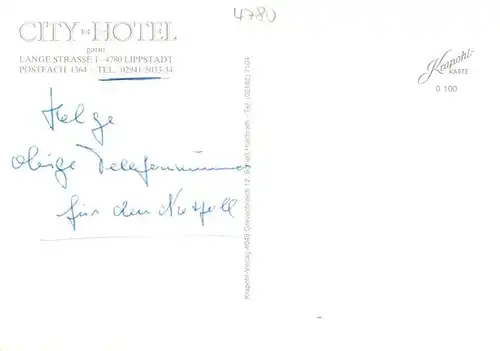 4780
CITY HOTEL
garni
LANGE STRASSE 1 - 4780 LIPPSTADT
POSTFACH 1364 - TEL. 02941/5033-34
Helge
obige Telefonnummer
für den Notfall
Krapohl-
KARTE
0 100
Krapohl-Verlag 4048 Grevenbroich 12, Hülchrath · Tel. (02182) 7104